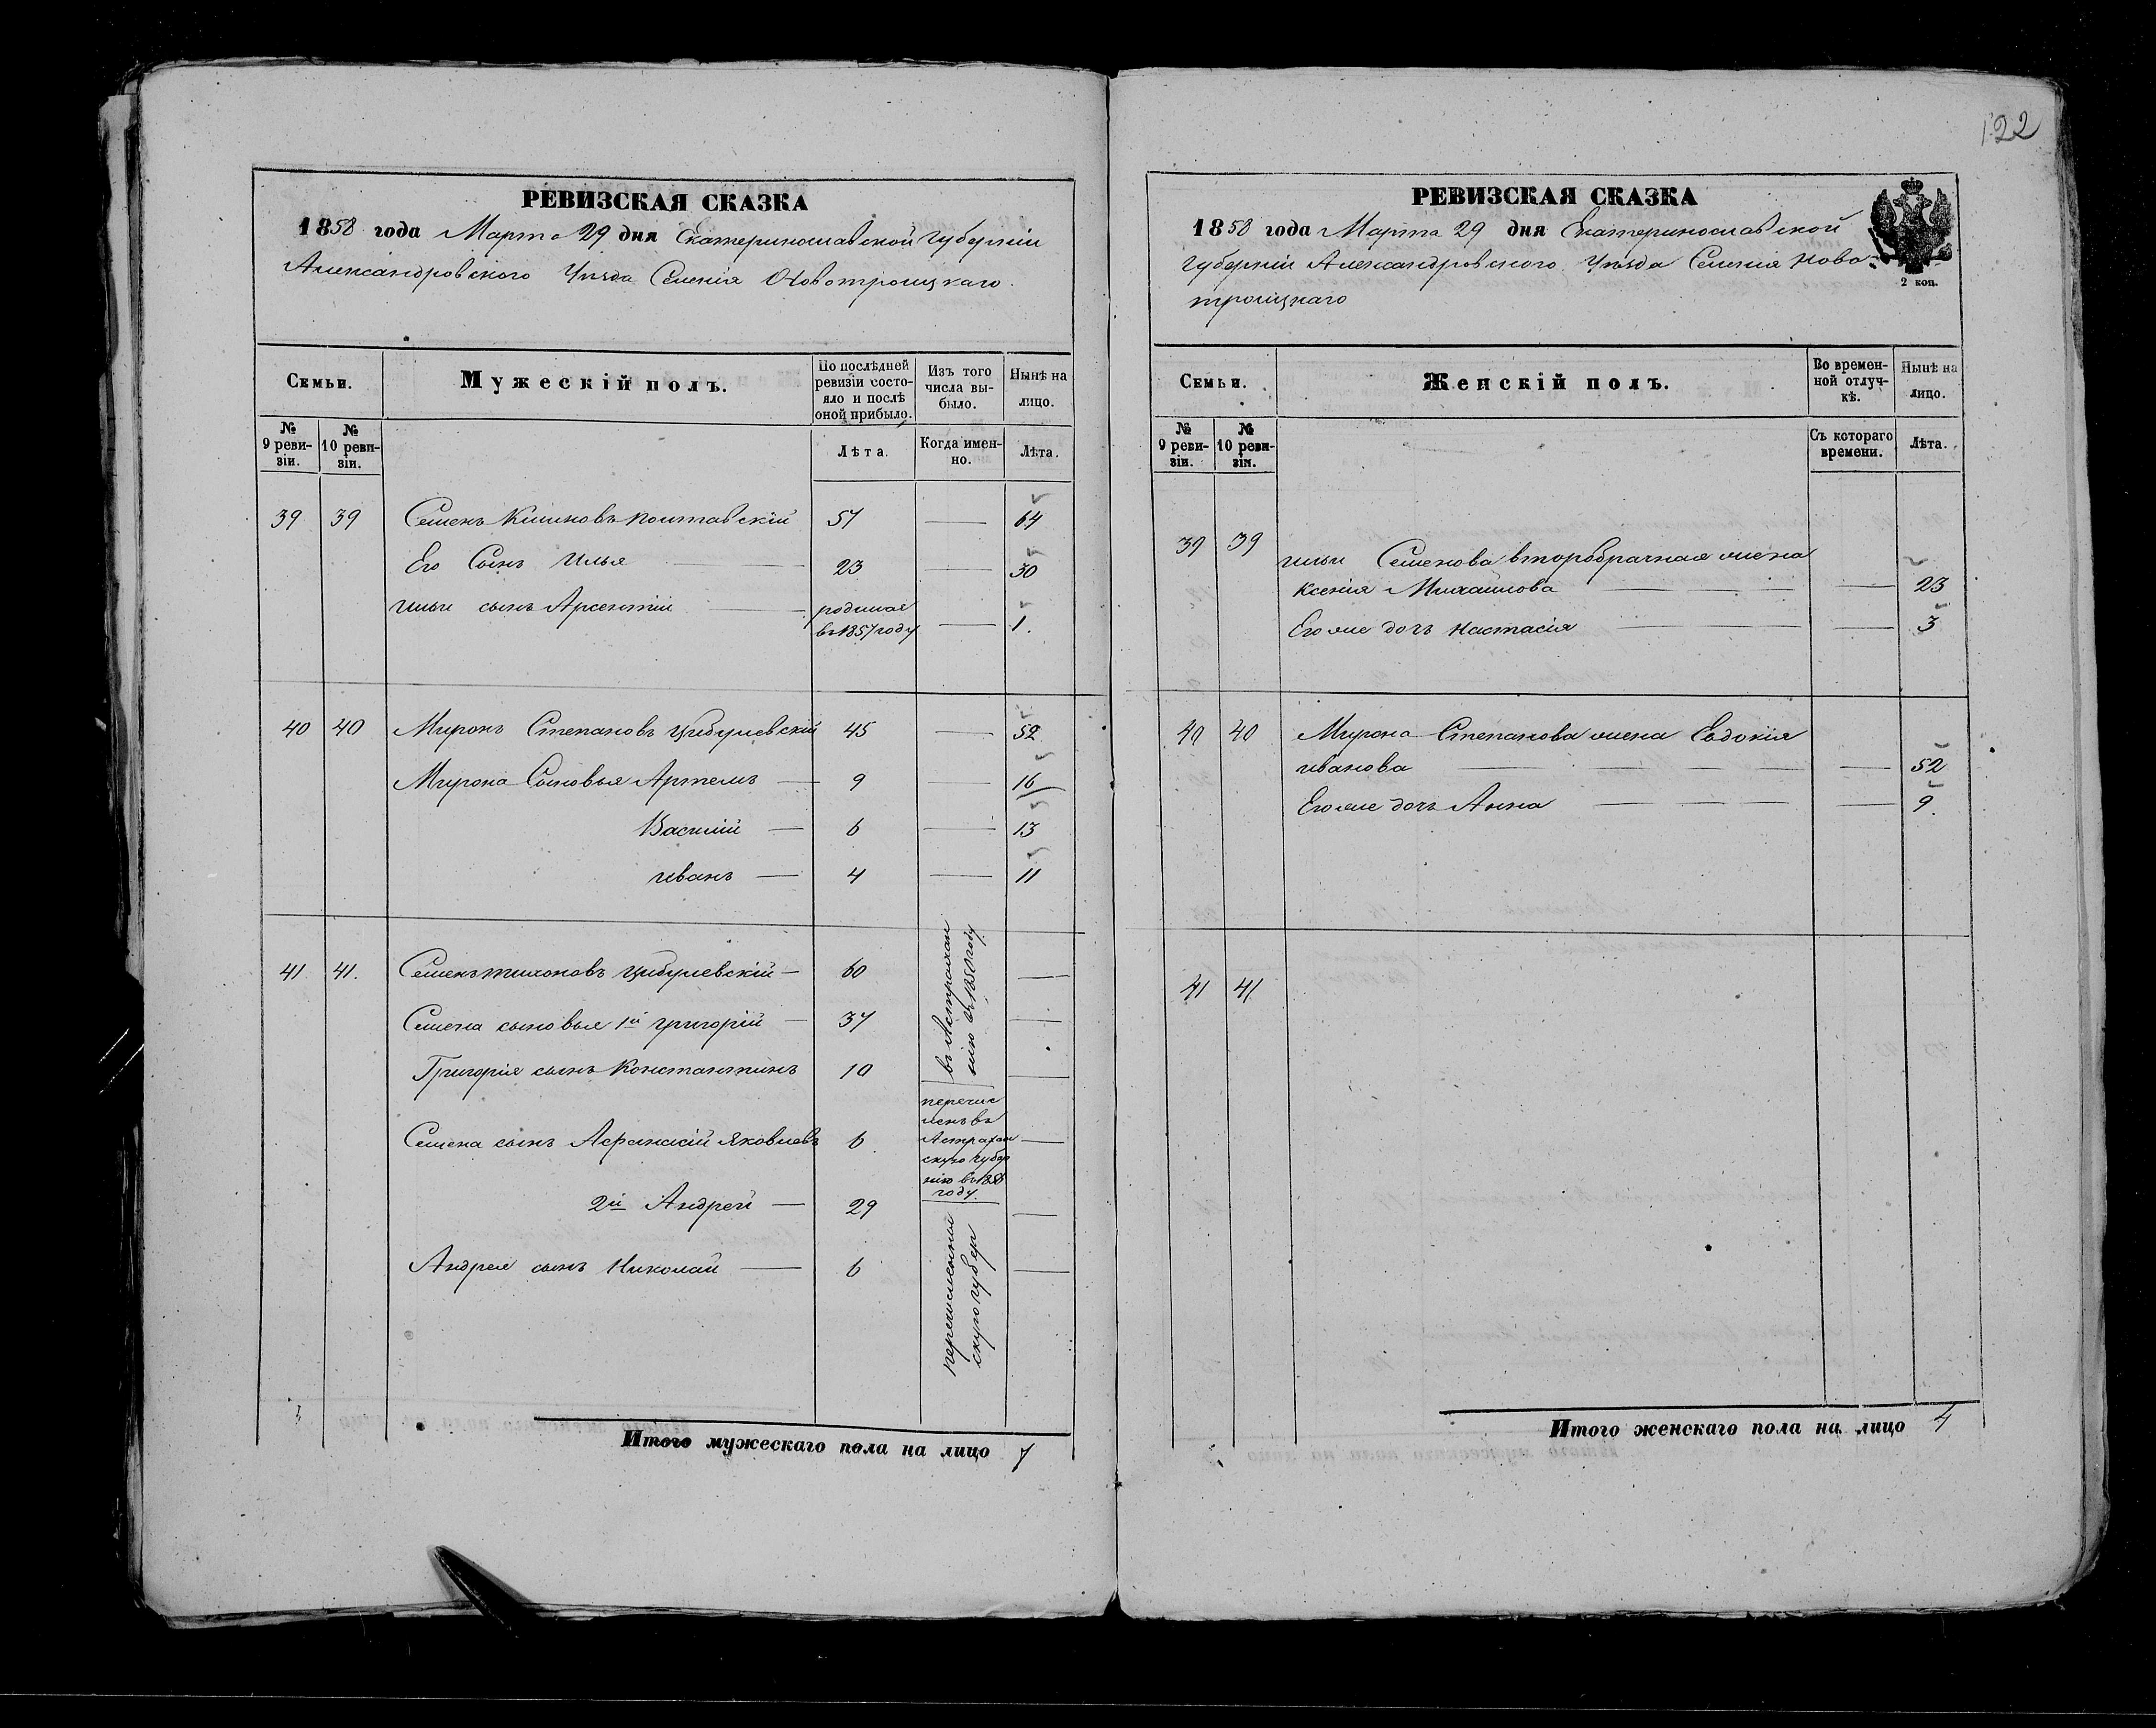 122
РЕВИЗСКАЯ СКАЗКА
1858 года Марта 29 дня Екатеринославской Губерніи
Александровского Уѣзда Селенія Новотроицкаго.
Семьи.
Мужескій полъ.
По послѣдней ревизіи состояло и послѣ оной прибыло.
Изъ того числа выбыло.
Нынѣ на лицо.
№ 9 ревизіи.
№ 10 ревизіи.
Лѣта.
Когда именно.
Лѣта.
39 39 Семенъ Полтавскій 57 — 64
Его Сынъ Илья — 23 — 30
Ильи сынъ Арсентій — родился
въ 1857 году — 1.
40 40 Миронъ Степановъ Цибулевскій 45 — 52
Мирона Сыновья Артемъ — 9 — 16
Василій — 6 — 13
иванъ — 4 — 11
41 41. Семенъ тихоновъ Цибулевскій — 60 —
Семена сыновья 1й григорій — 37 —
Григорія сынъ Константинъ 10 —
въ Астрахан
нію въ 1850 году
Семена сынъ Афанасій Яковлевъ 6 —
перечис
ленъ въ
Астрахан
скую губер
нію въ 1850
году.
2й Андрей — 29 —
Андрея сынъ Николай — 6 —
перечисленны
скую губер
Итого мужескаго пола на лицо 7
РЕВИЗСКАЯ СКАЗКА
1858 года Марта 29 дня Екатеринославской
Губерніи Александровского Уѣзда Селенія Ново
троицкаго
2 коп.
Семьи.
Женскій полъ.
Во временной отлучкѣ.
Нынѣ на лицо.
№ 9 ревизіи.
№ 10 ревизіи.
Съ котораго времени.
Лѣта.
39 39 Ильи Семенова второбрачная жена
Ксенія Михаилова — — 23
Его же дочь Настасія — — 3
40 40 Мирона Степанова жена Евдокія
иванова — — 52
Его же дочь Анна — — 9.
41 41
Итого женскаго пола на лицо 4